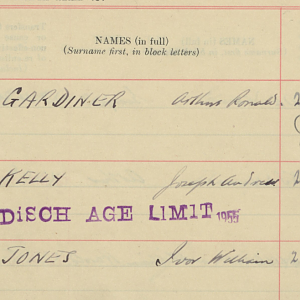 NAMES (in full)
(Surname first, in block letters)
GARDINER Arthur Ronald. 2
KELLY Joseph Andrew 2
DISCH AGE LIMIT 1955
JONES Ivor William 2